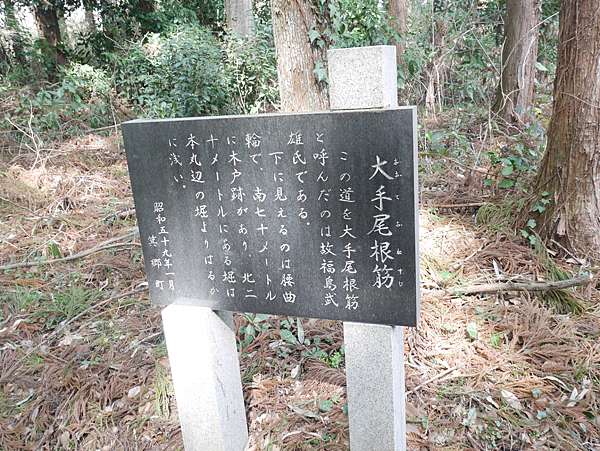 大手尾根筋
おおておねすじ
この道を大手尾根筋
と呼んだのは故福島武
雄氏である。
下に見えるのは腰曲
輪で、南七十メートル
に木戸跡があり、北二
十メートルにある堀は
本丸辺の堀よりはるか
に浅い。
昭和五十九年一月
箕郷町